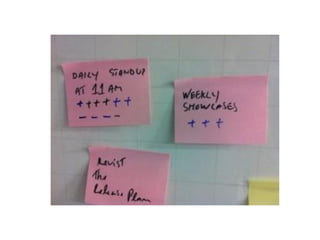 DAILY STANDUP
AT 11 AM
++++++
----
WEEKLY
SHOWCASES
+++
Revist
The
Release Plan